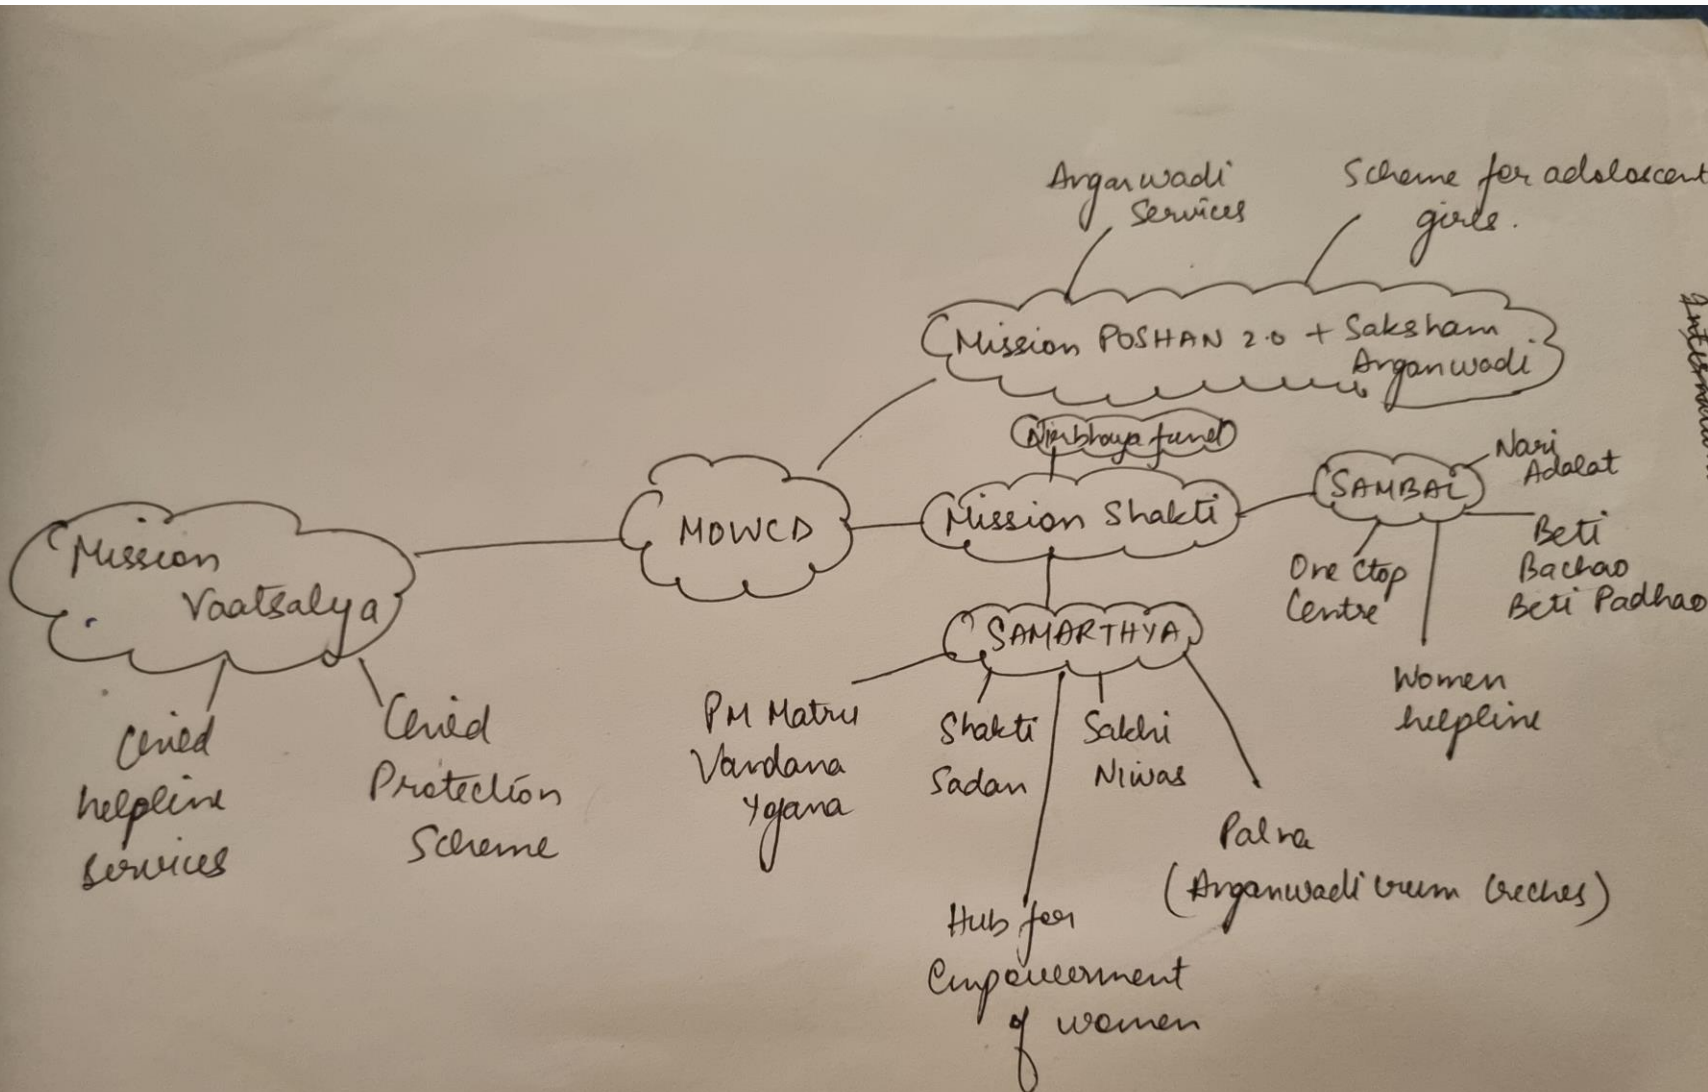 Anganwadi
Services
Scheme for adoloscent
girls.
Mission POSHAN 2.0 + Saksham
Anganwadi
Nirbhaya fund
Mission Shakti
SAMBAL
Nari
Adalat
Beti
Bachao
Beti Padhao
One Stop
Centre
Women
helpline
MOWCD
Mission
Vaatsalya
Child
helpline
Services
Child
Protection
Scheme
SAMARTHYA
PM Matru
Vandana
Yojana
Shakti
Sadan
Sakhi
Niwas
Palna
(Anganwadi cum Creches)
Hub for
Empowerment
of women